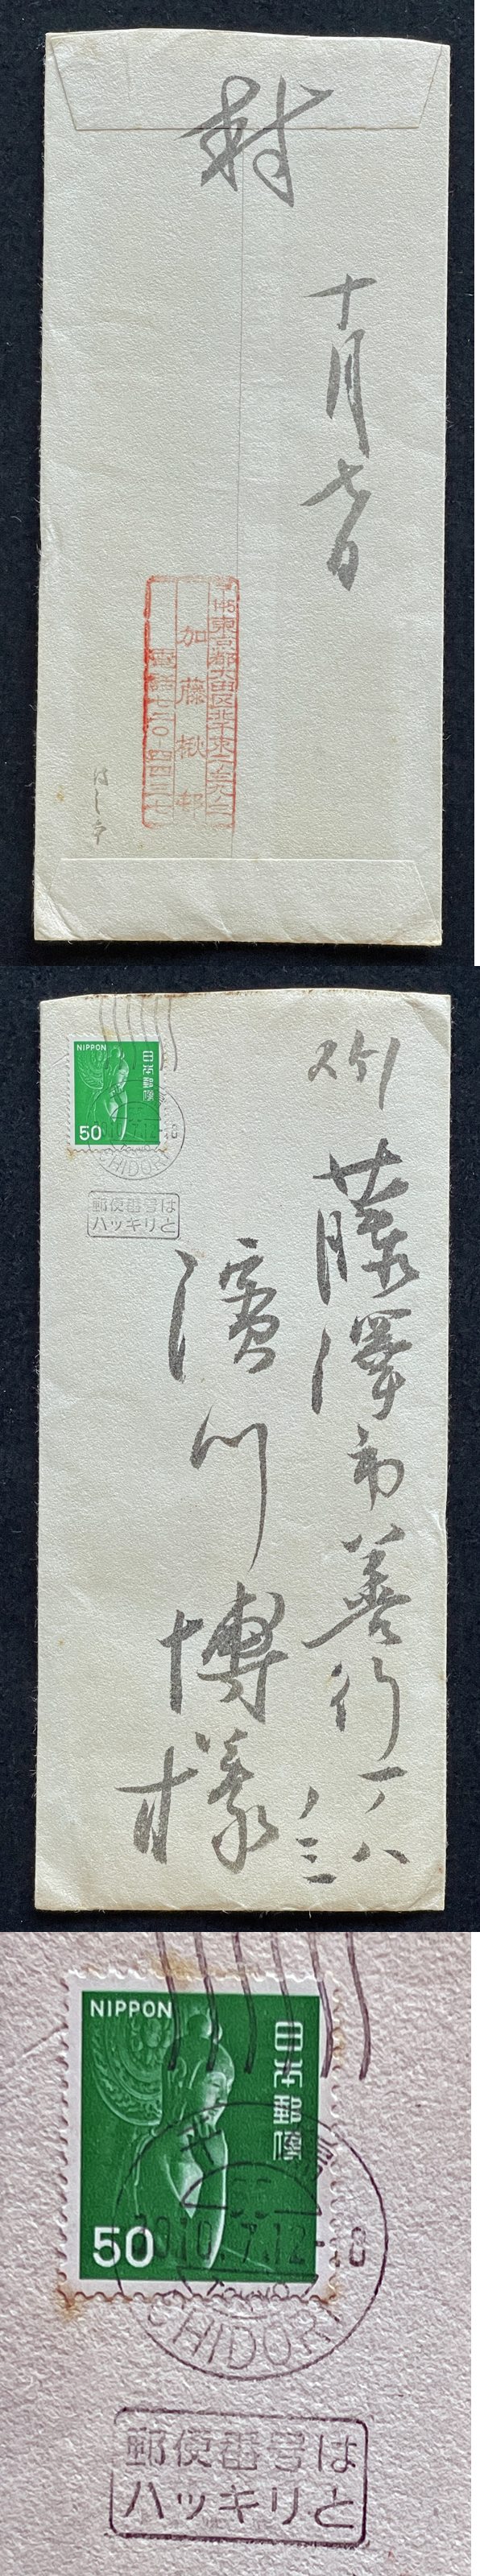 封
十月七日
〒145東京都大田区北千束二ノ三九ノ三
加藤楸邨
電話七二〇-四四三七
NIPPON
日本郵便
50
CHIDORI
郵便番号は
ハッキリと
藤澤市善行一ノ八
ノ三
濱川博様
NIPPON
日本郵便
50
10.7.12-18
CHIDORI
郵便番号は
ハッキリと